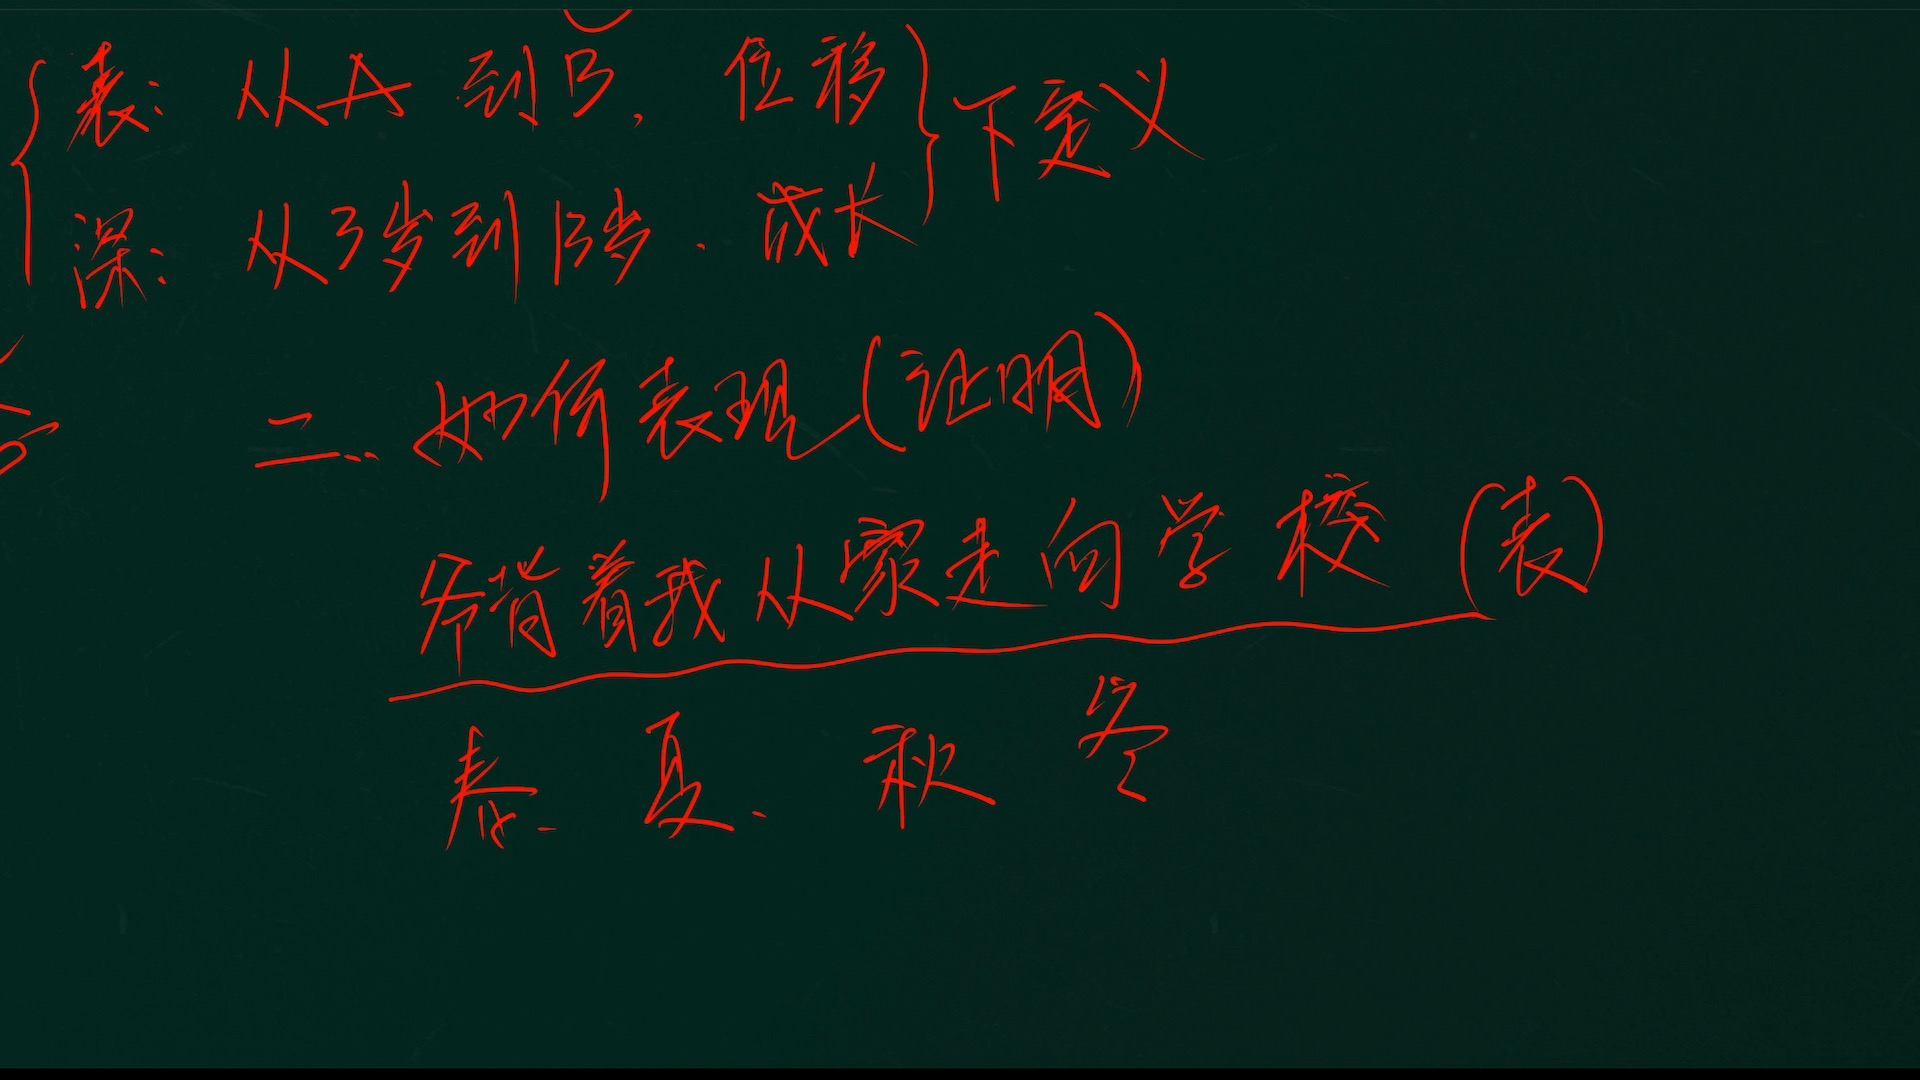 表：从A到B，位移
深：从3岁到13岁．成长
下定义
二．如何表现（证明）
爷背着我从家走向学校（表）
春．夏．秋 冬